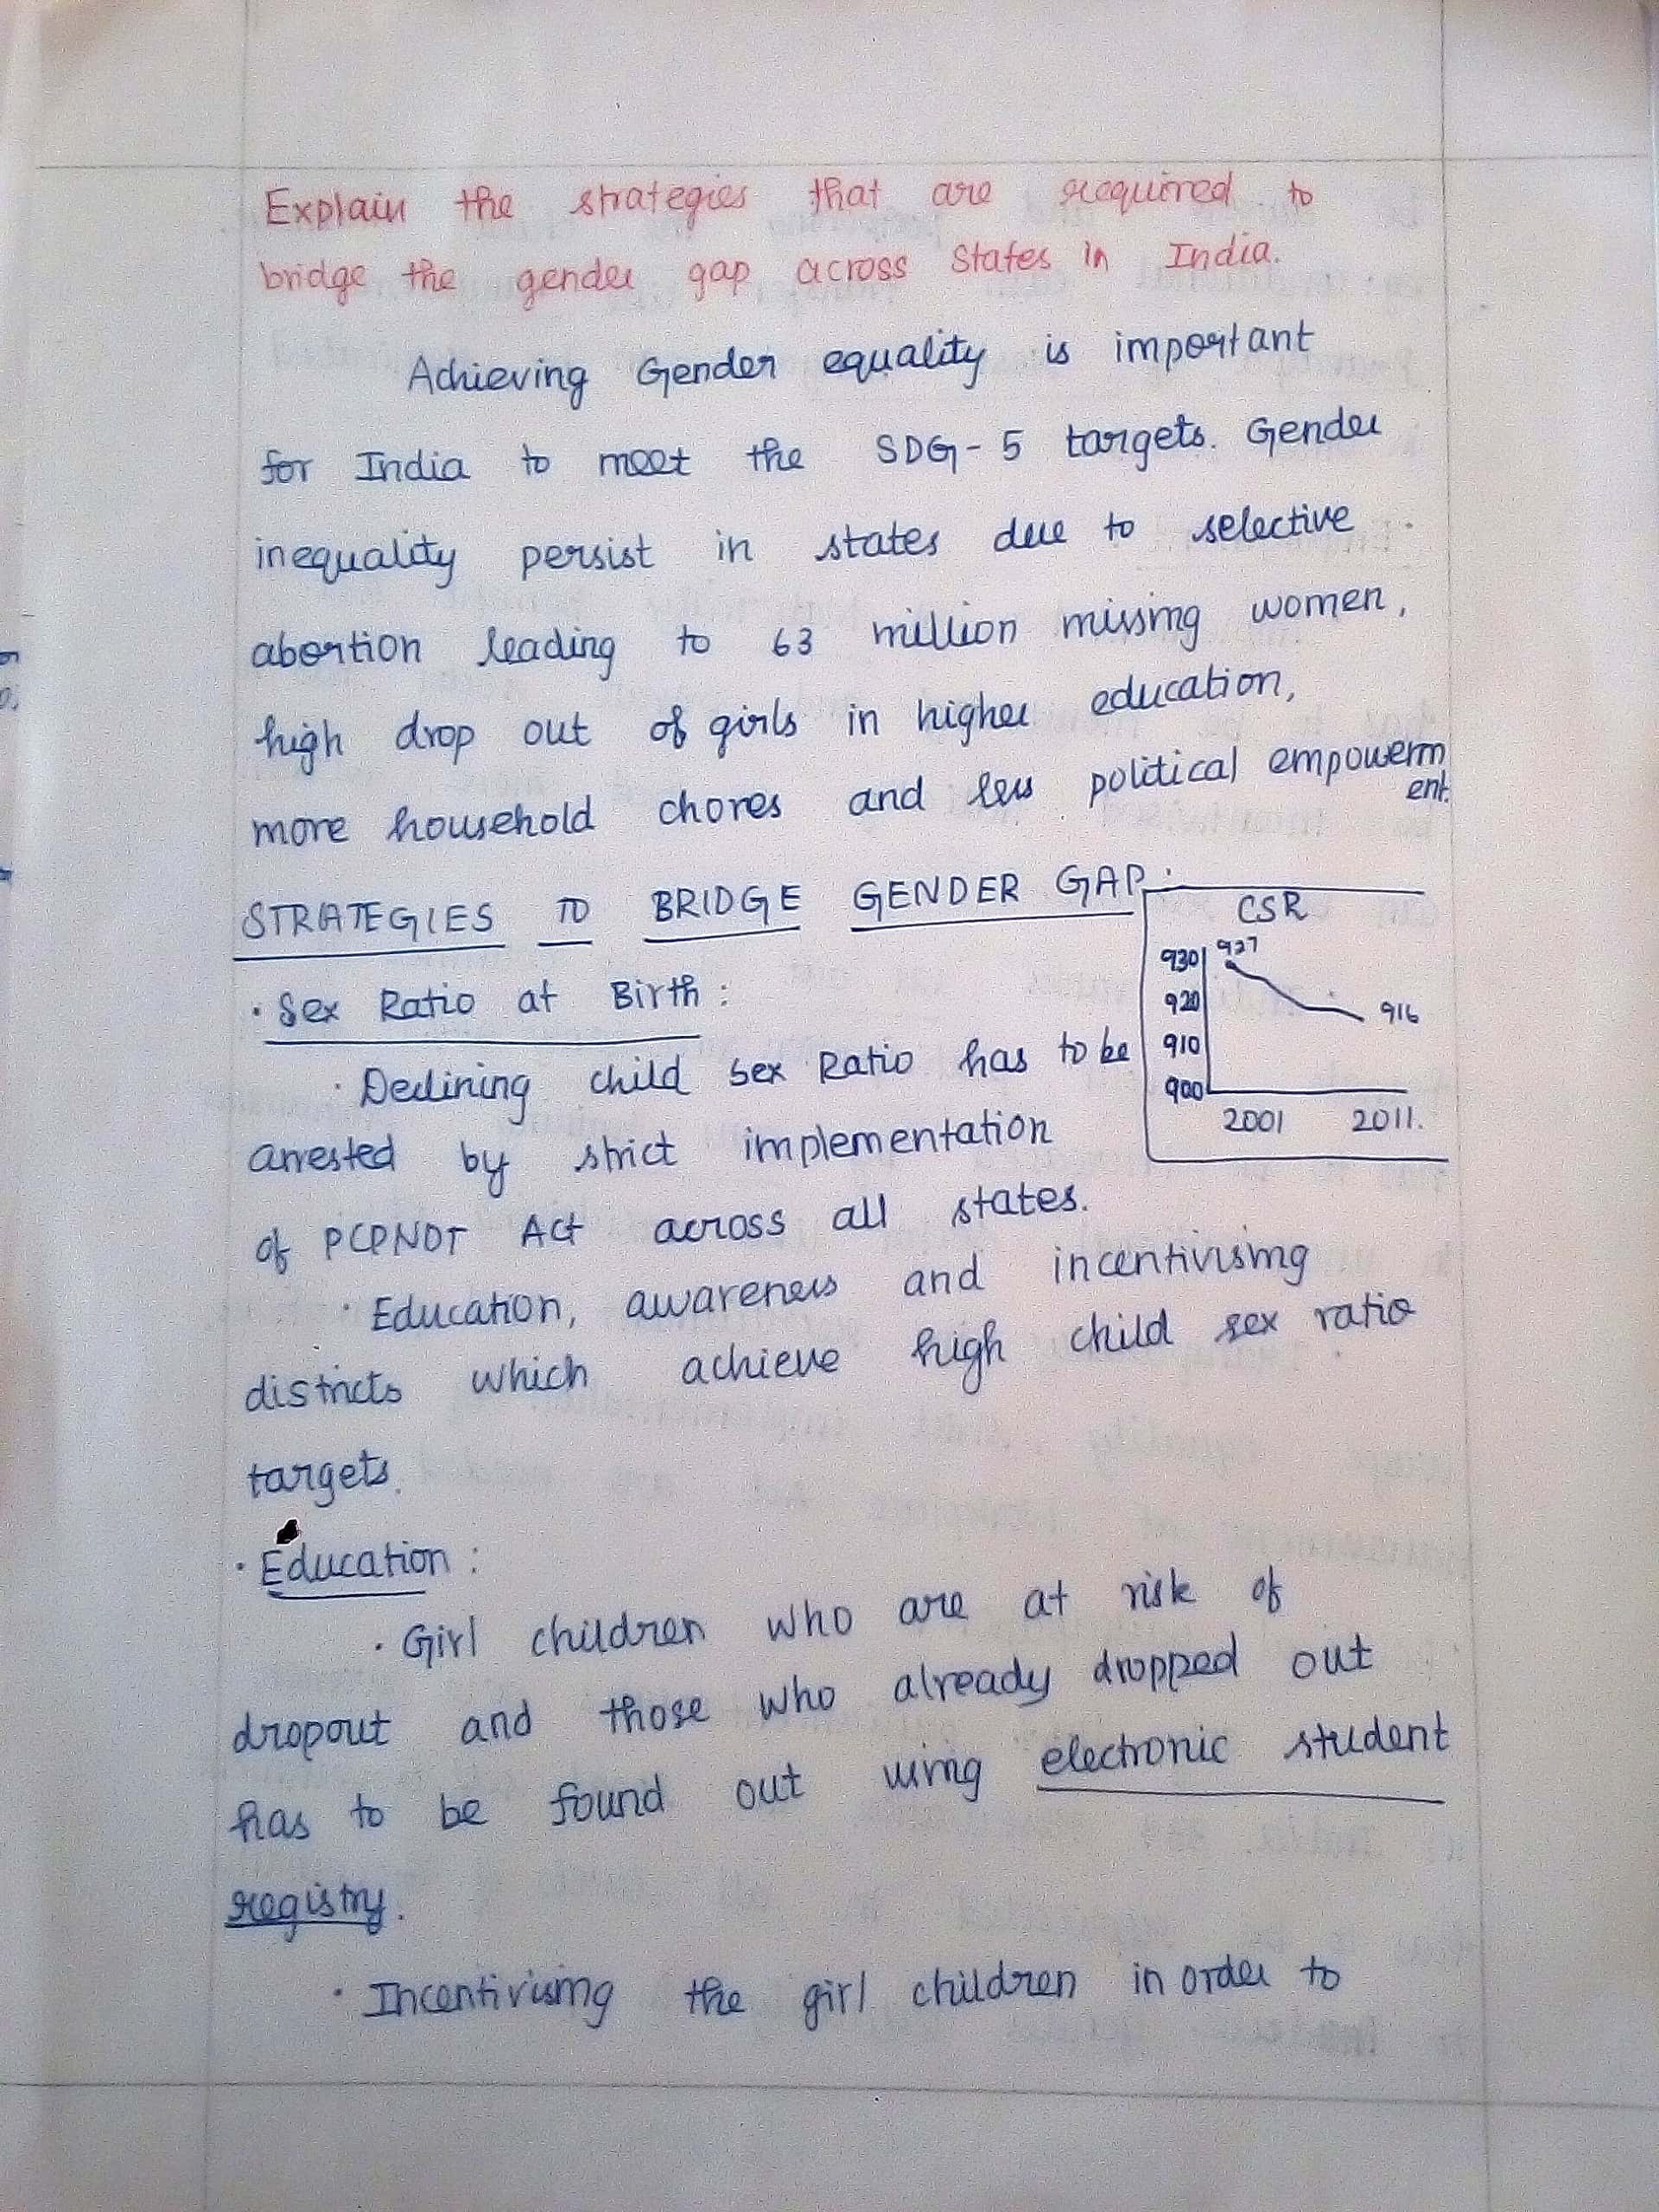 Explain the strategies that are required to
bridge the gender gap across States in India.
Achieving Gender equality is important
for India to meet the SDG-5 targets. Gender
inequality persist in states due to selective
abortion leading to 63 million missing women,
high drop out of girls in higher education,
more household chores and less political empowerm
ent.
STRATEGIES TO BRIDGE GENDER GAP:
CSR
930 927
920
916
910
900
2001 2011.
· Sex Ratio at Birth:
· Declining child sex Ratio has to be
arrested by strict implementation
of PCPNDT Act across all states.
· Education, awareness and incentivising
districts which achieve high child sex ratio
targets.
· Education:
· Girl children who are at risk of
dropout and those who already dropped out
has to be found out using electronic student
registry.
· Incentivising the girl children in order to